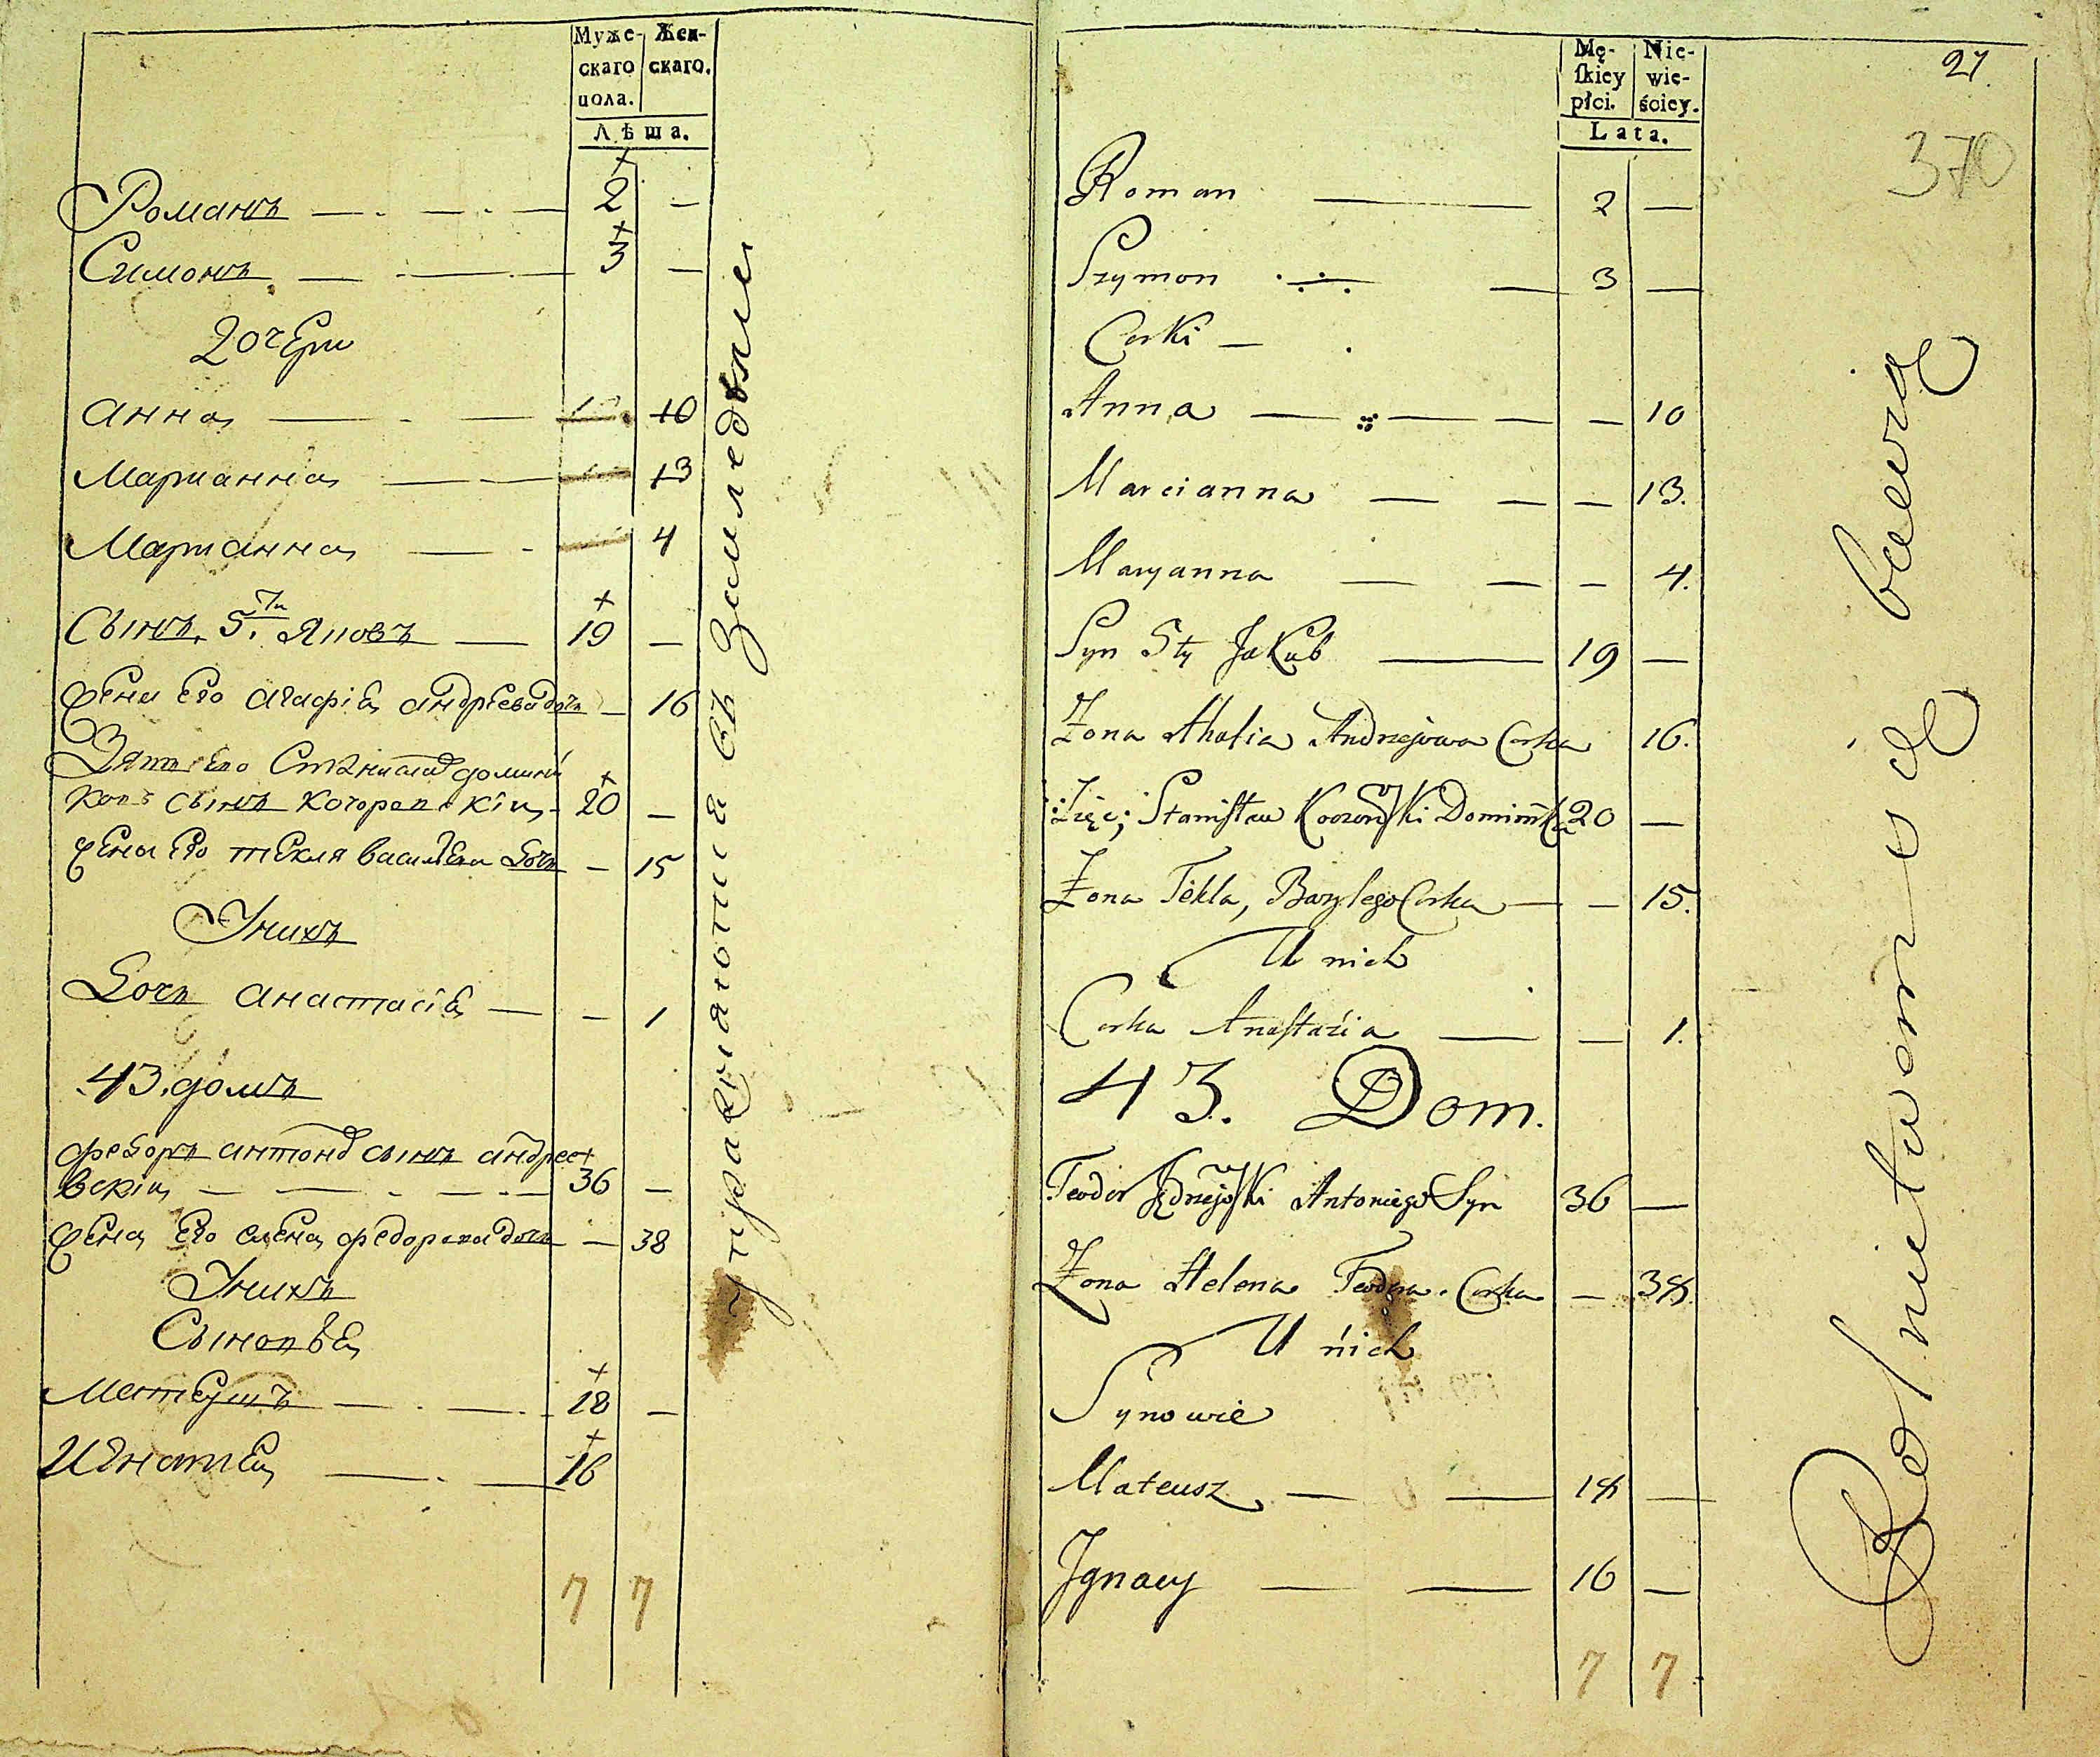 Муже-
скаго
пола.
Жен-
скаго.
Лѣта.
Романъ — 2 —
Симонъ — 3 —
Дочери
Анна — 10
Марцианна — 13
Марианна — 4
Сынъ 5ти Яковъ — 19 —
жена его Агафiя Андреева дочь — 16
Зять его Станиславъ Домини
ковъ сынъ — 20 —
жена его Текля Васильева дочь — 15
У нихъ
Дочь Анастасiя — — 1
43. домъ
Федоръ Антоновъ сынъ Андреев
вскiй — 36 —
жена его Елена Федорова дочь — 38
У нихъ
Сыновья
Матеушъ — 18 —
Игнатий — 16
7 7
упражняются въ земледелии
Mę-
ſkiey
płci.
Nie-
wie-
ściey.
Lata.
27.
370
Roman — 2 —
Szymon — 3 —
Corki —
Anna — — 10
Marcianna — — 13.
Maryanna — — 4.
Syn 5ty Jakub — 19 —
Żona Ahafia Andrzejowa Corka 16.
Zięć; Stanisław Dominika 20 —
Żona Tekla, Bazylego Corka — — 15.
U nich
Corka Anastazia — — 1.
43. Dom.
Teodor Jędrzejoſki Antoniego Syn 36 —
Żona Helena Teodora Corka — 38.
U nich
Synowie
Mateusz — 18 —
Jgnacy — 16 —
7 7